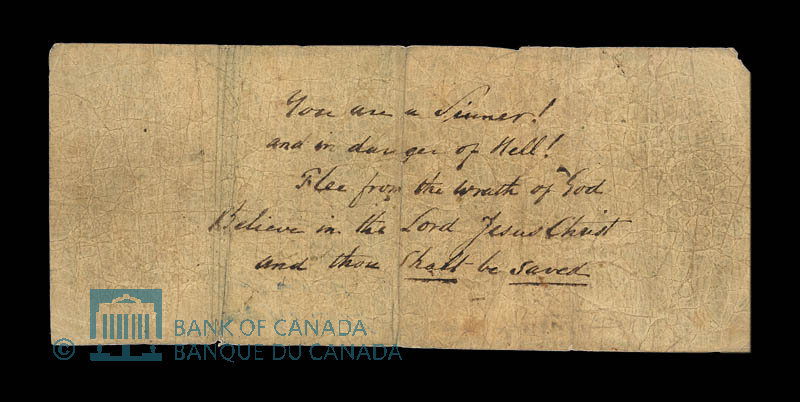 You are a Sinner!
and in danger of Hell!
Flee from the wrath of God
Believe in the Lord Jesus Christ
and thou Shalt be saved
© BANK OF CANADA
BANQUE DU CANADA